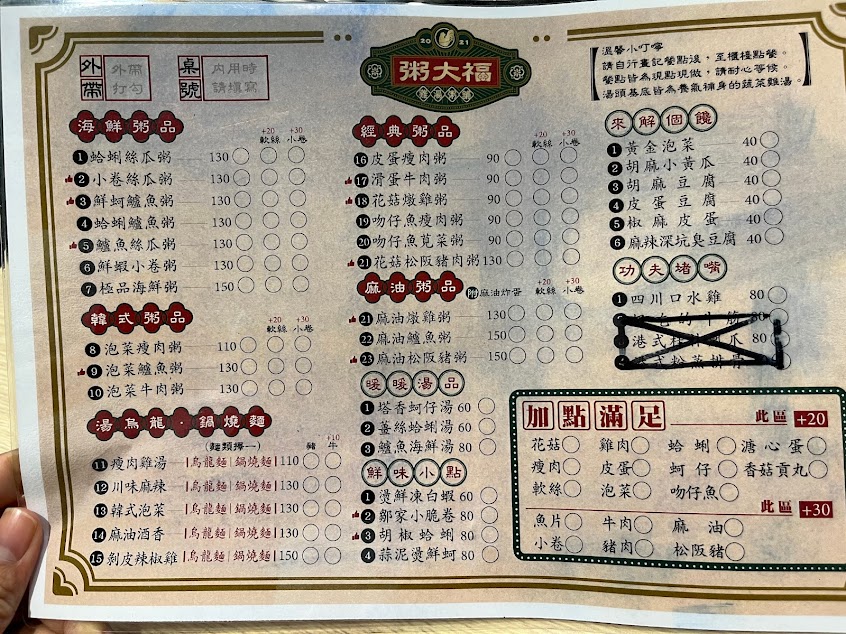 外帶
外帶
打勾
桌號
內用時
請填寫
2021
粥大福
溫馨小叮嚀
請自行畫記餐點後，至櫃檯點餐。
餐點皆為現點現做，請耐心等候。
湯頭基底皆為養氣補身的蔬菜雞湯。
海鮮粥品
+20 軟絲 +30 小卷
1 蛤蜊絲瓜粥 130
2 小卷絲瓜粥 130
3 鮮蚵鱸魚粥 130
4 蛤蜊鱸魚粥 130
5 鱸魚絲瓜粥 130
6 鮮蝦小卷粥 130
7 極品海鮮粥 150
韓式粥品
+20 軟絲 +30 小卷
8 泡菜瘦肉粥 110
9 泡菜鱸魚粥 130
10 泡菜牛肉粥 130
湯烏龍·鍋燒麵
(麵類擇一) 豬 +10 牛
11 瘦肉雞湯 |烏龍麵|鍋燒麵| 110
12 川味麻辣 |烏龍麵|鍋燒麵| 130
13 韓式泡菜 |烏龍麵|鍋燒麵| 130
14 麻油酒香 |烏龍麵|鍋燒麵| 130
15 剝皮辣椒雞 |烏龍麵|鍋燒麵| 150
經典粥品
+20 軟絲 +30 小卷
16 皮蛋瘦肉粥 90
17 滑蛋牛肉粥 90
18 花菇燉雞粥 90
19 吻仔魚瘦肉粥 90
20 吻仔魚莧菜粥 90
21 花菇松阪豬肉粥 130
麻油粥品 附 麻油炸蛋
+20 軟絲 +30 小卷
21 麻油燉雞粥 130
22 麻油鱸魚粥 150
23 麻油松阪豬粥 150
暖暖湯品
1 塔香蚵仔湯 60
2 薑絲蛤蜊湯 60
3 鱸魚海鮮湯 80
鮮味小點
1 燙鮮凍白蝦 60
2 鄒家小脆卷 80
3 胡椒蛤蜊 80
4 蒜泥燙鮮蚵 80
來解個饞
1 黃金泡菜 40
2 胡麻小黃瓜 40
3 胡麻豆腐 40
4 皮蛋豆腐 40
5 椒麻皮蛋 40
6 麻辣深坑臭豆腐 40
功夫堵嘴
1 四川口水雞 80
80
港式
加點滿足
此區 +20
花菇 雞肉 蛤蜊 溏心蛋
瘦肉 皮蛋 蚵仔 香菇貢丸
軟絲 泡菜 吻仔魚
此區 +30
魚片 牛肉 麻油
小卷 豬肉 松阪豬